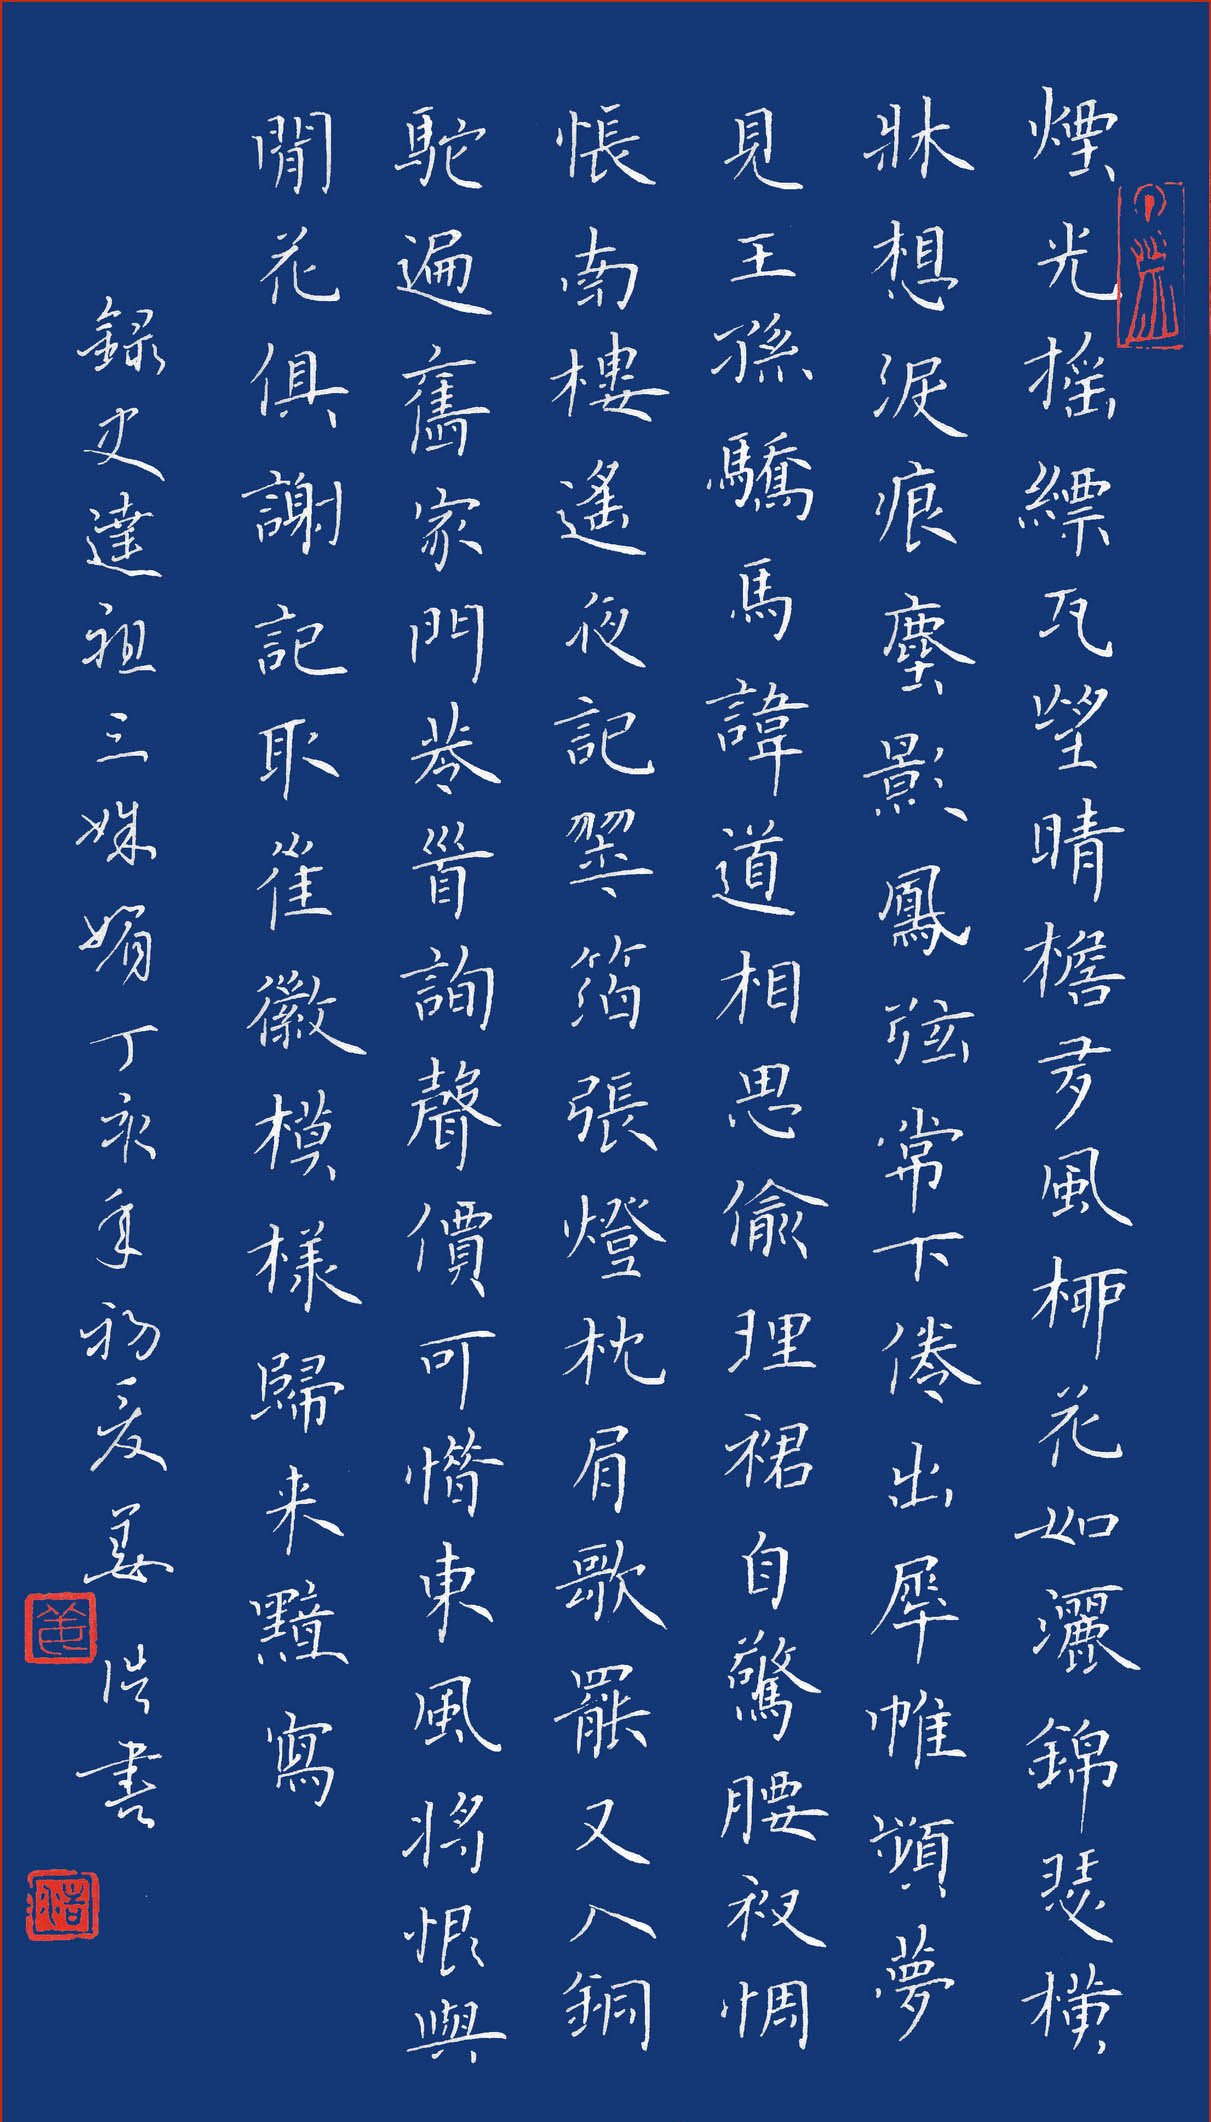 煙光摇縹瓦望晴檐多風柳花如灑錦瑟横
牀想淚痕塵影鳳弦常下倦出犀帷頻夢
見王孫驕馬諱道相思偷理裙自驚腰衩惆
悵南樓遙夜記翠箔張燈枕肩歌罷又入銅
駝遍舊家門巷首詢聲價可惜東風將恨與
閒花俱謝記取崔徽模樣歸来黯寫
録史達祖三姝媚丁亥年初夏姜浩書